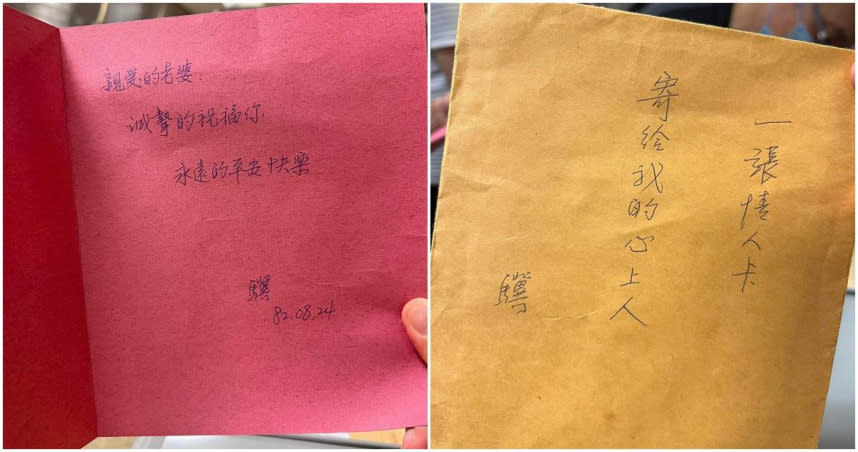 親愛的老婆：
誠摯的祝福你
永遠的平安快樂
驥
82.08.24
一張情人卡
寄給我的心上人
驥